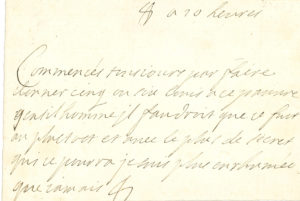 a 10 heures
Commencés tousiours par faire
donner cinq ou six louis a ce pauvre
gentilhomme il faudroit que ce fust
au plustost et avec le plus de secret
qui ce pourra je suis plus enrhumée
que iamais